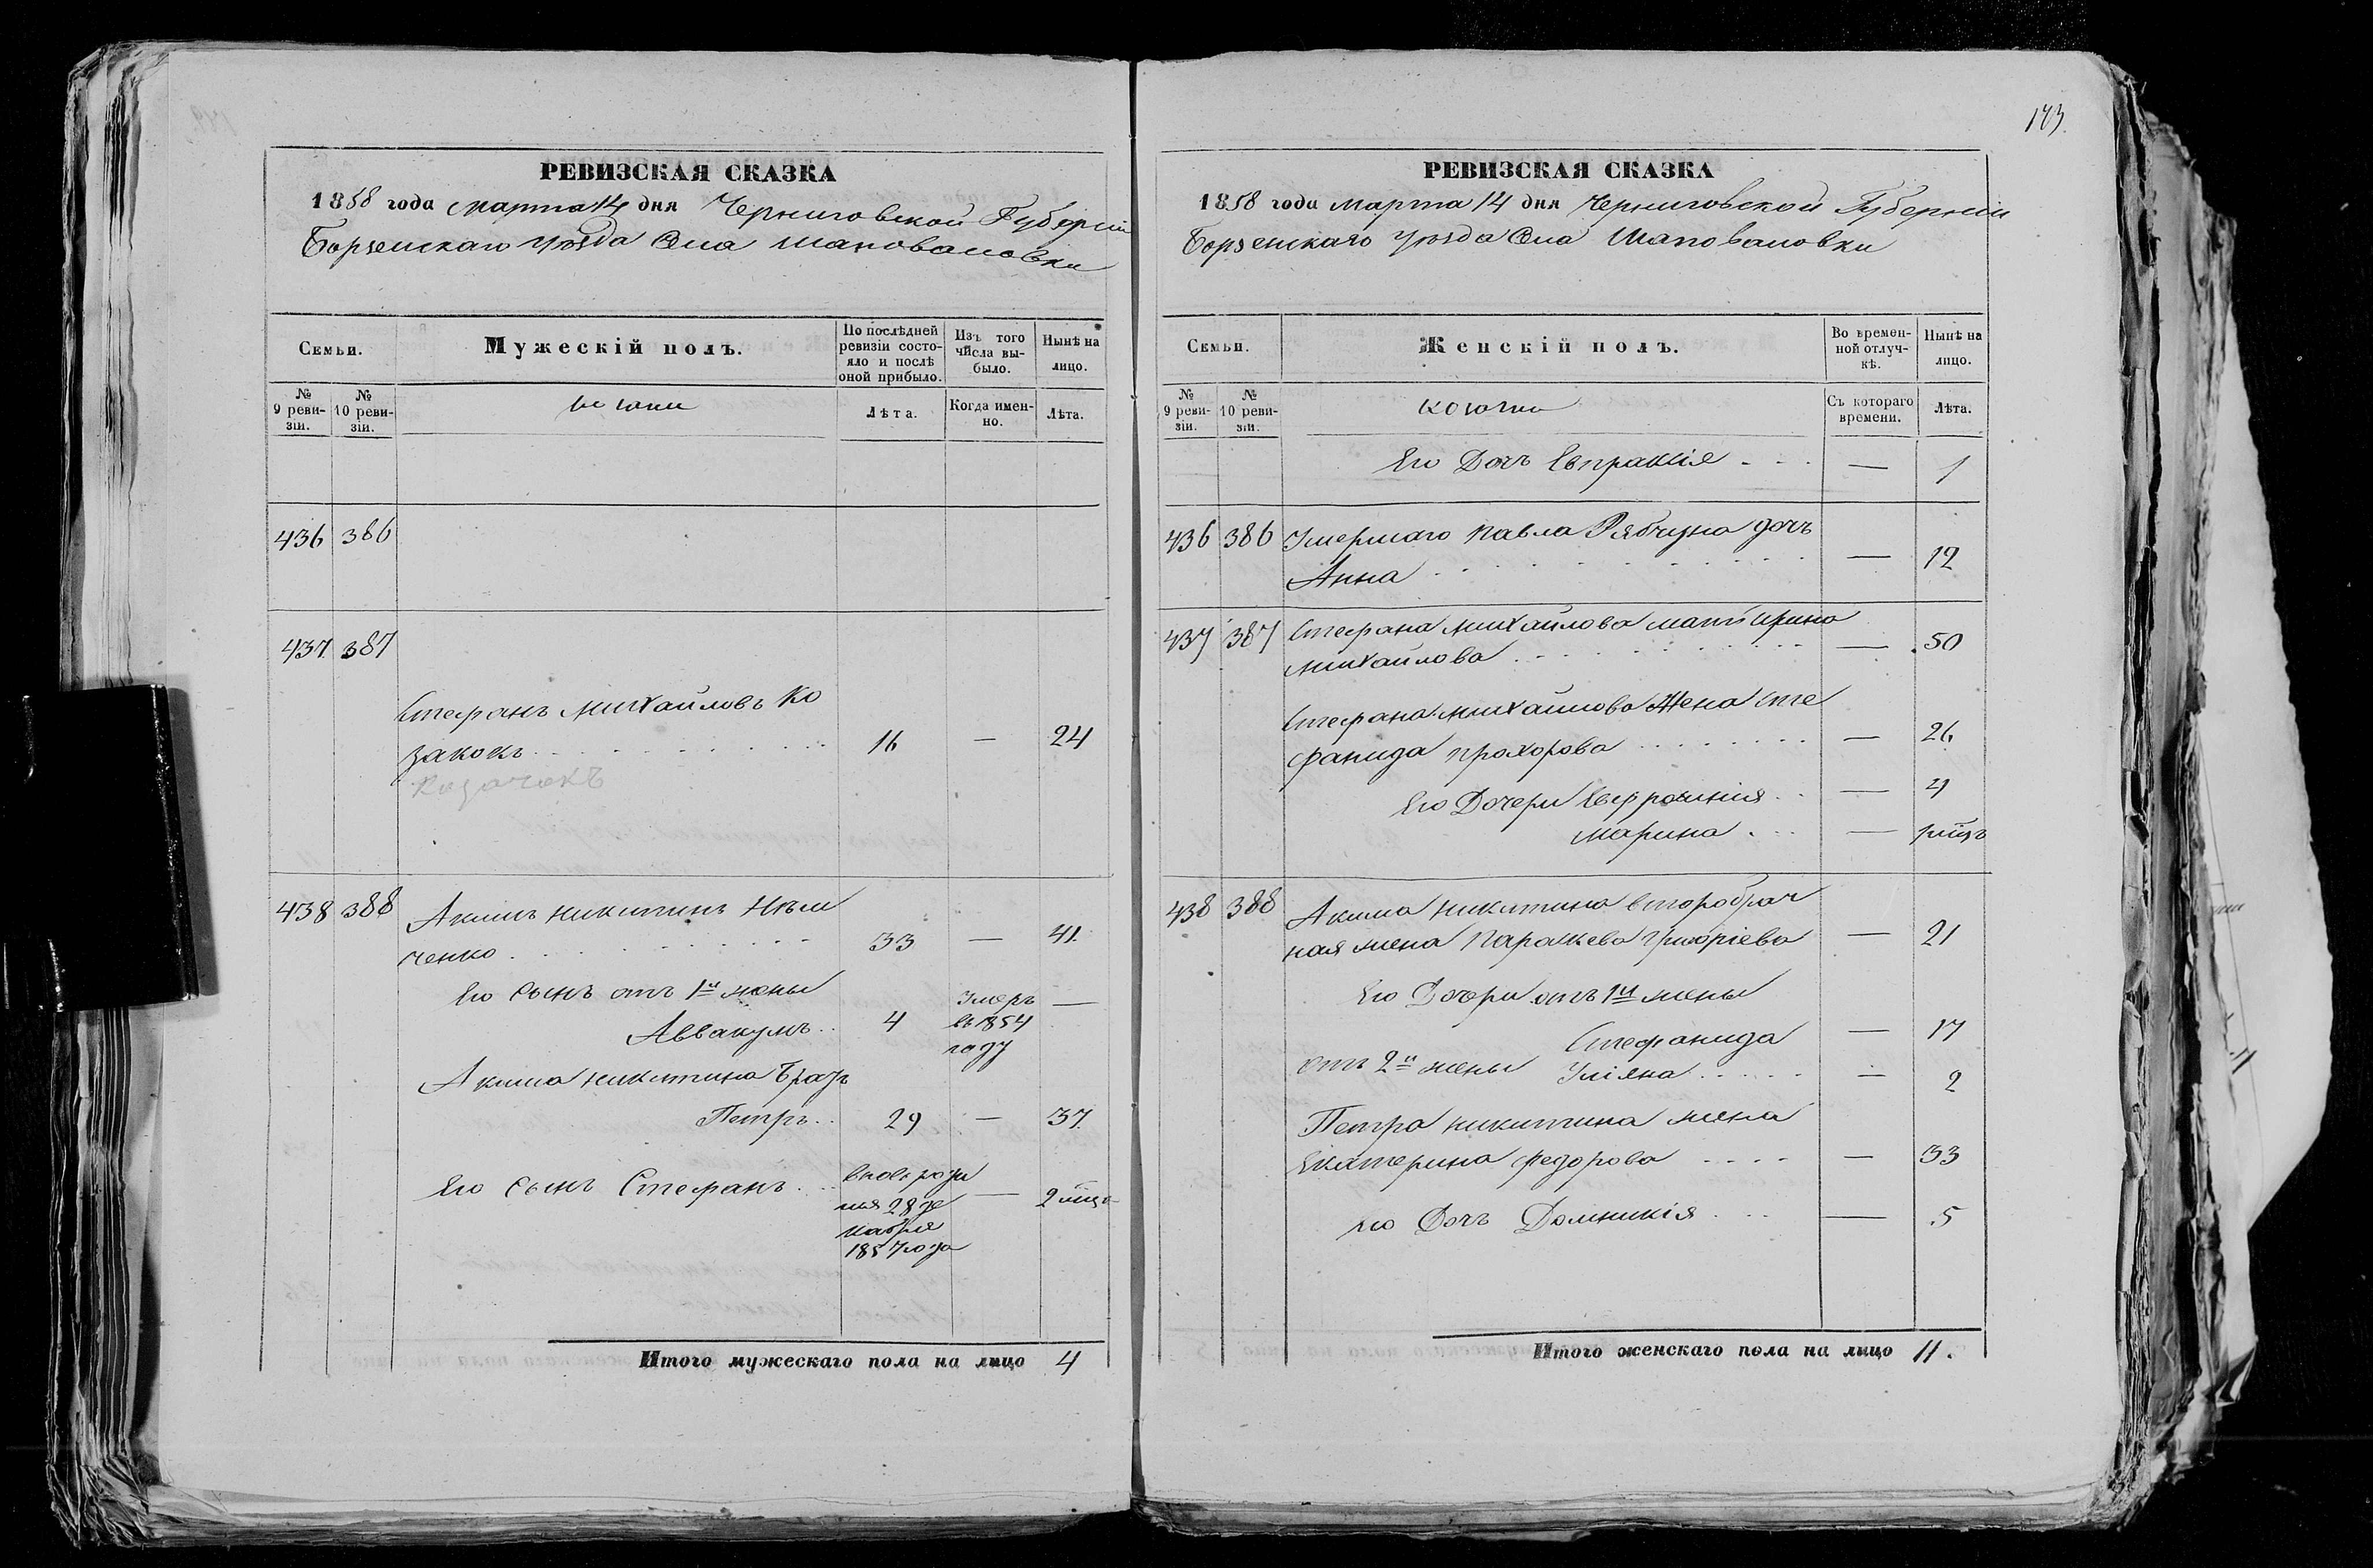 РЕВИЗСКАЯ СКАЗКА
1858 года марта 14 дня Черниговской Губерніи
Борзенскаго уѣзда Села Шаповаловки
Семьи.
Мужескій полъ.
По послѣдней ревизіи состо-
яло и послѣ
оной прибыло.
Изъ того
числа вы-
было.
Нынѣ на
лицо.
№
9 реви-
зіи.
№
10 реви-
зіи.
Лѣта.
Когда имен-
но.
Лѣта.
436 386
437. 387
Стефанъ Михайловъ Ко
закокъ 16 — 24
Козачокъ
438 388 Акимъ Никитинъ Нѣм
ченко 33 — 41.
Его Сынъ отъ 1й жены
Аввакумъ 4 Умеръ
въ 1854
году —
Акима Никитина Братъ
Петръ 29 — 37.
Его Сынъ Стефанъ вновь роди
ися 28 де
кабря
1857 года — 2 мцъ
Итого мужескаго пола на лицо 4
173.
РЕВИЗСКАЯ СКАЗКА
1858 года Марта 14 дня Черниговской Губерніи
Борзенскаго уѣзда Села Шаповаловки
Семьи.
Женскій полъ.
Во времен-
ной отлуч-
кѣ.
Нынѣ на
лицо.
№
9 реви-
зіи.
№
10 реви-
зіи.
Съ котораго
времени.
Лѣта.
Его Дочъ Евпраксія — 1
436 386 Умершаго Павла Рябчуна дочъ
Анна — 12
437 387 Стефана Михайлова мать Ирина
Михайлова — 50
Стефана Михайлова Жена Сте
фанида Прохорова — 26
Его Дочери Евфросинія — 4
Марина —
438 388 Акима Никитина второбрач
ная жена Параскева Григоріева — 21
Его Дочери отъ 1й жены
Стефанида — 17
отъ 2й жены Уліяна — 2
Петра Никитина жена
Екатерина Федорова — 33
его Дочъ Домникія — 5
Итого женскаго пола на лицо 11.